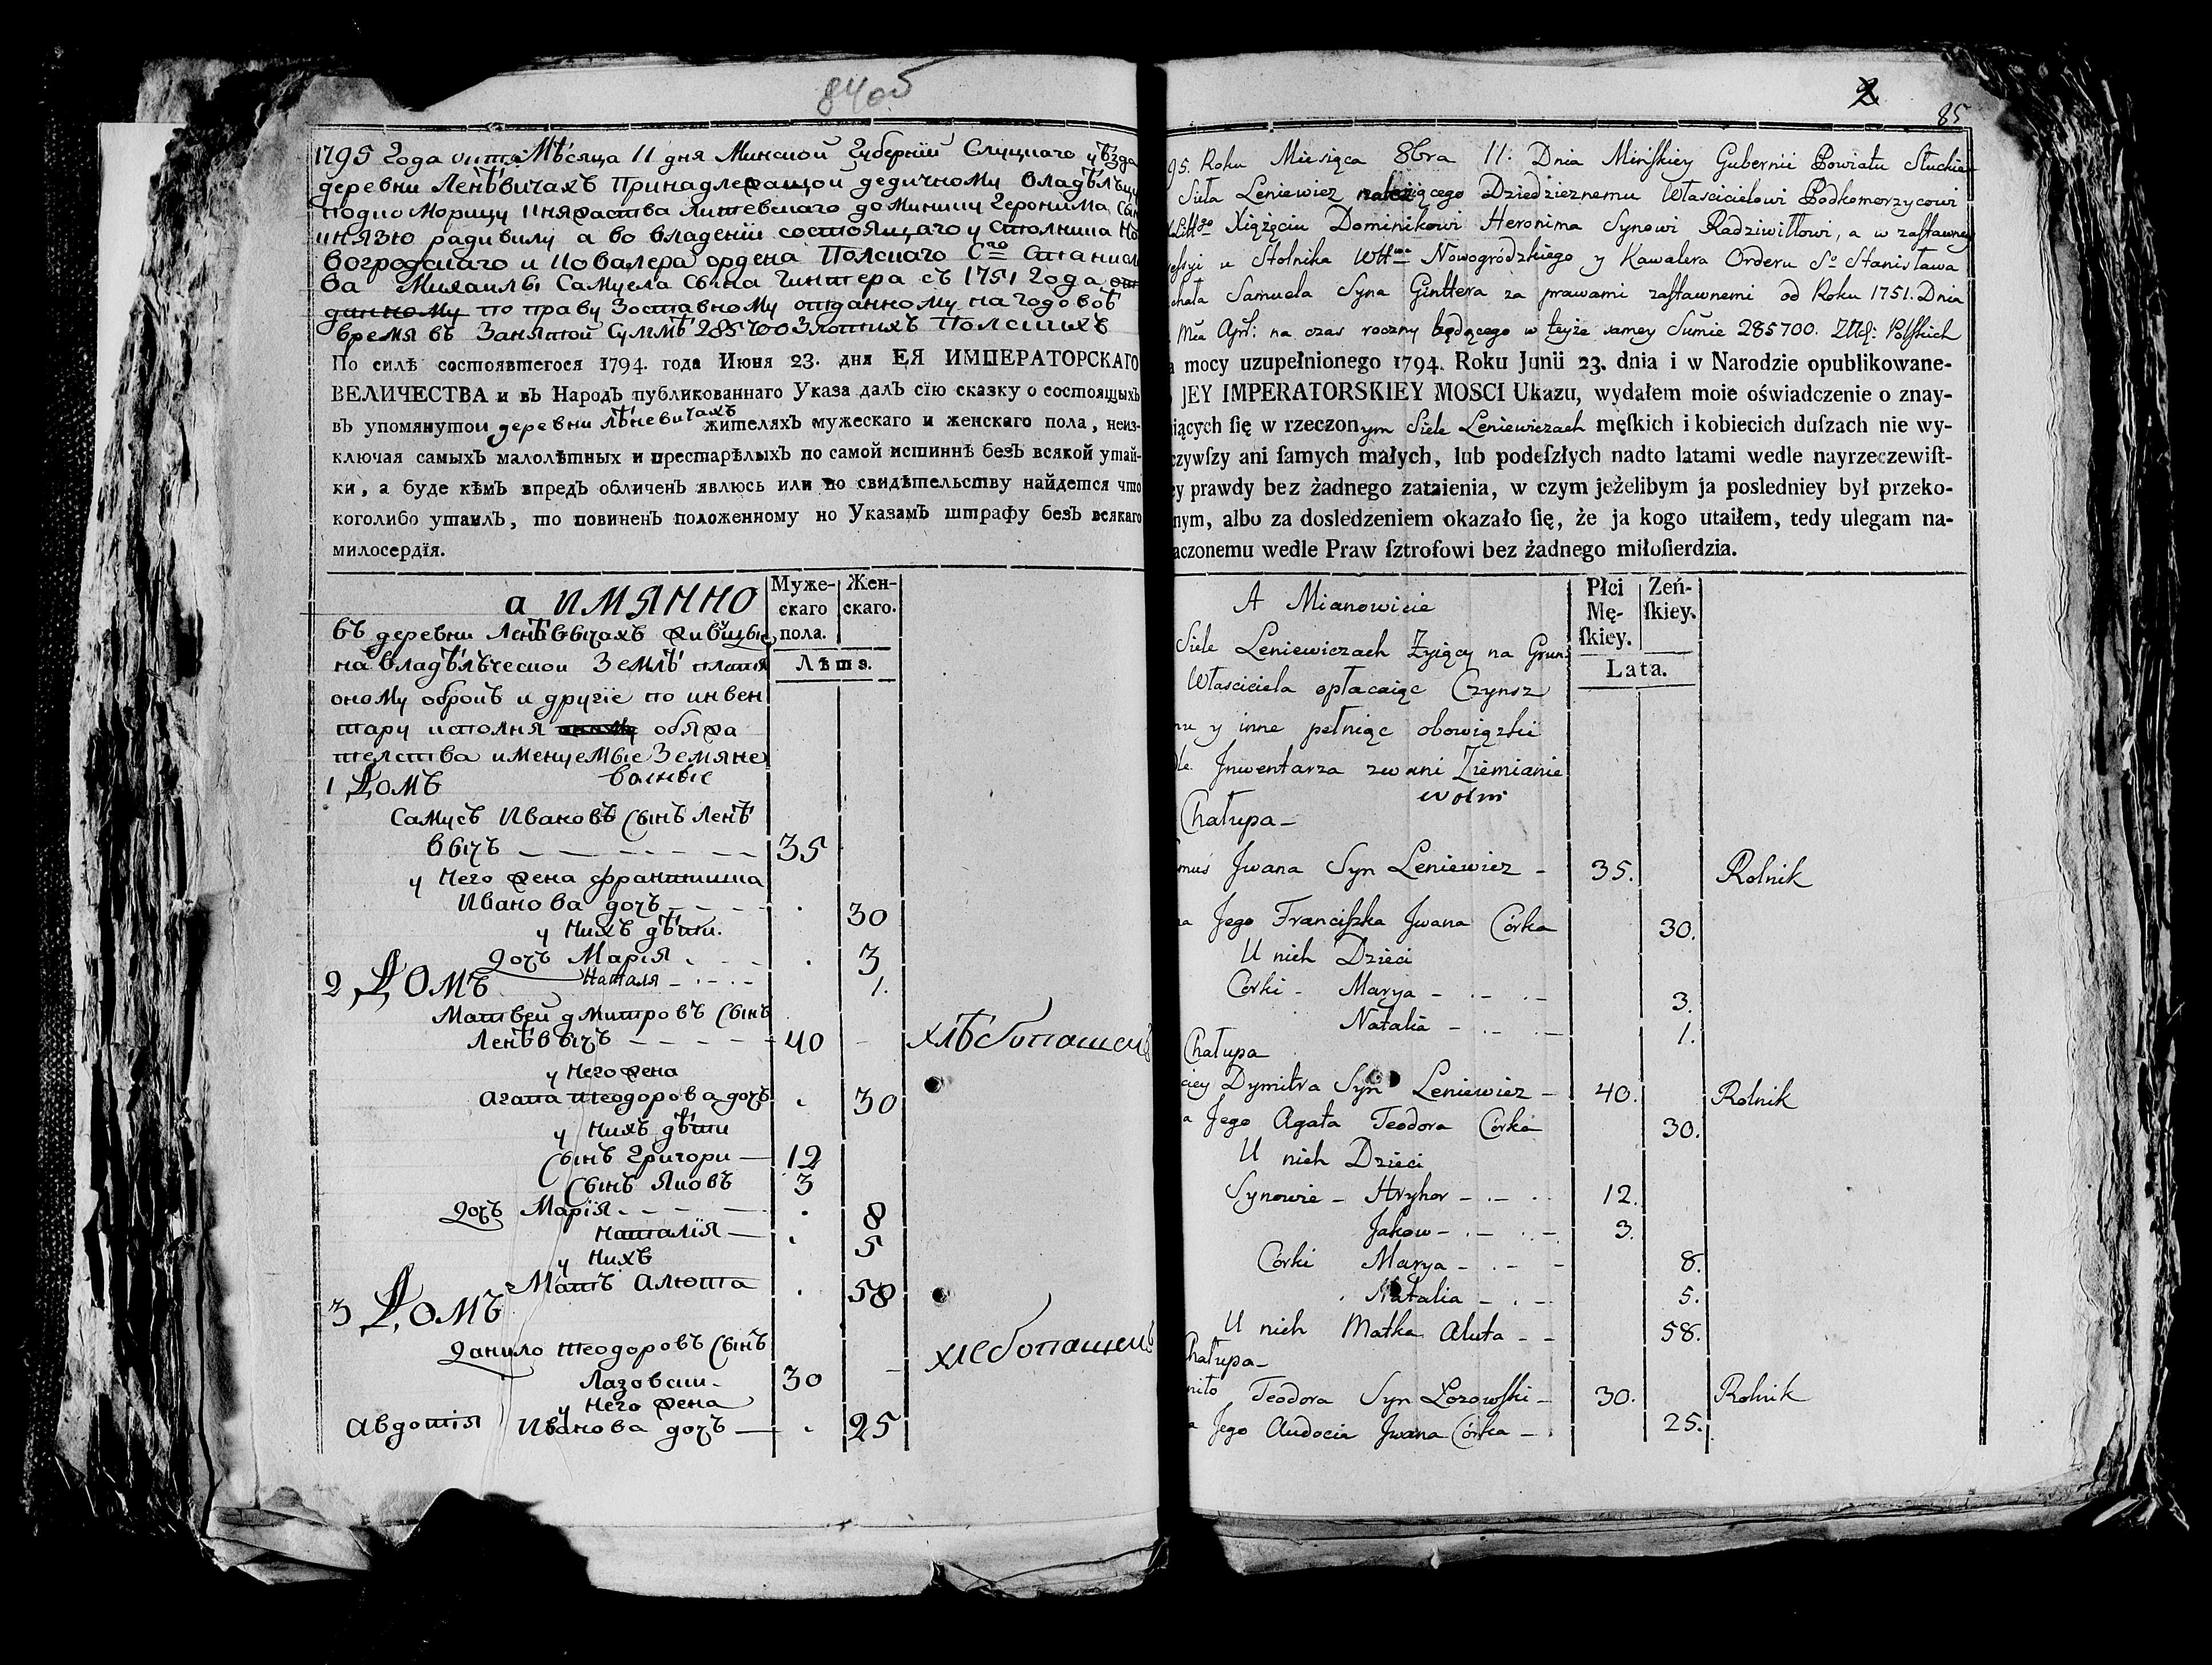 84об
1795 Года октѧ Мѣсяца 11 дня Минской Губерніи Слуцкаго уѣзда
деревни Ленѣвичахъ Принадлежащои дедичному владѣлъцу
подко Морицу княжества литевскаго доминику Геронима Сын
князю радивилу а во владеніи состоящаго у Столника Но
вогродскаго и ковалера ордена Полскаго Сго Станисл
ва Михаилы Самуела Сына Гинтера съ 1751 Года
данному по праву Зоставному отданному на годовоѣ
время въ Занятой Суммѣ 285700 Злотихъ Полскихъ
По силѣ состоявшегося 1794. года Июня 23. дня ЕЯ ИМПЕРАТОРСКАГО
ВЕЛИЧЕСТВА и въ Народъ публикованнаго Указа далъ сїю сказку о состоящыхъ
въ упомянутои деревни лѣневичахъ жителяхъ мужескаго и женскаго пола, неиз-
ключая самыхъ малолѣтныхъ и престарѣлыхъ по самой истиннѣ безъ всякой утай-
ки, а буде кѣмъ впредъ обличенъ явлюсь или по свидѣтельству найдется что
коголибо утаилъ, то повиненъ положенному по Указамъ штрафу безъ всякаго
милосердїя.
а имянно
Муже-скаго пола. Жен-скаго.
Лѣта.
въ деревни Ленѣввичахъ живущы
на владѣлъческои Землѣ платя
оному оброкъ и другіе по инвен
тару исполня обяжа
телства именуемые Земяне
волные
1 Домъ
Самусъ Ивановъ Сынъ Ленѣ
вычъ 35
у Него жена франтишка
Иванова дочъ 30
у Нихъ дѣти.
дочъ Марія 3
Наталя 1.
2 Домъ
Матвей дмитровъ Сынъ
Ленѣввычъ 40 хлѣбопашецъ
у Него жена
Агата теодорова дочъ 30
у Нихъ дѣти
Сынъ Григори 12
Сынъ Яковъ 3
дочъ Марїя 8
Наталїя 5
у Нихъ
Матъ Алюта 58
3 Домъ
данило теодоровъ Сынъ
Лазовски 30 хлебопашецъ
у Него жена
Авдотія Иванова дочъ 25
2
85
95. Roku Miesiąca 8bra 11: Dnia Minſkiey Gubernii Powiatu Słuckie
Siła Leniewicz należącego Dziedzicznemu Włascicielowi Podkomorzycowi
Xiążęciu Dominikowi Heronima Synowi Radziwiłłowi, a w zaſtawney
u Stolnika Nowogródzkiego y Kawalera Orderu So Stanisława
chała Samuela Syna Ginttera za prawami zaſtawnemi od Roku 1751. Dnia
Mca Aprl: na czas roczny będącego w teyże samey Sumie 285700. Złłh: Polſkich
a mocy uzupełnionego 1794. Roku Junii 23. dnia i w Narodzie opublikowane-
JEY IMPERATORSKIEY MOSCI Ukazu, wydałem moie oświadczenie o znay-
iących ſię w rzeczonym Siele Leniewiczach męſkich i kobiecich duſzach nie wy-
czywſzy ani ſamych małych, lub podeſzłych nadto latami wedle nayrzeczewiſt-
ey prawdy bez żadnego zataienia, w czym jeżelibym ja posledniey był przeko-
nym, albo za dosledzeniem okazało ſię, że ja kogo utaiłem, tedy ulegam na-
aczonemu wedle Praw ſztrofowi bez żadnego miłoſierdzia.
A Mianowicie
Płci Mę-ſkiey. Zeń-ſkiey.
Lata.
Siele Leniewiczach Żyiący na Grun
Właściciela opłacaiąc Czynsz
mu y inne pełniąc obowiązki
dle Jnwentarza zwani Ziemianie
wolni
Chałupa
mus Jwana Syn Leniewicz 35. Rolnik
na Jego Franciſzka Jwana Córka 30.
U nich Dzieci
Córki Marya 3.
Natalia 1.
Chałupa
ciey Dymitra Syn Leniewicz 40. Rolnik
a Jego Agata Teodora Córka 30.
U nich Dzieci
Synowie Hryhor 12.
Jakow 3.
Córki Marya 8.
Natalia 5.
U nich Matka Aluta 58.
Chałupa
niło Teodora Syn Łozowſki 30. Rolnik
a Jego Audocia Jwana Córka 25.